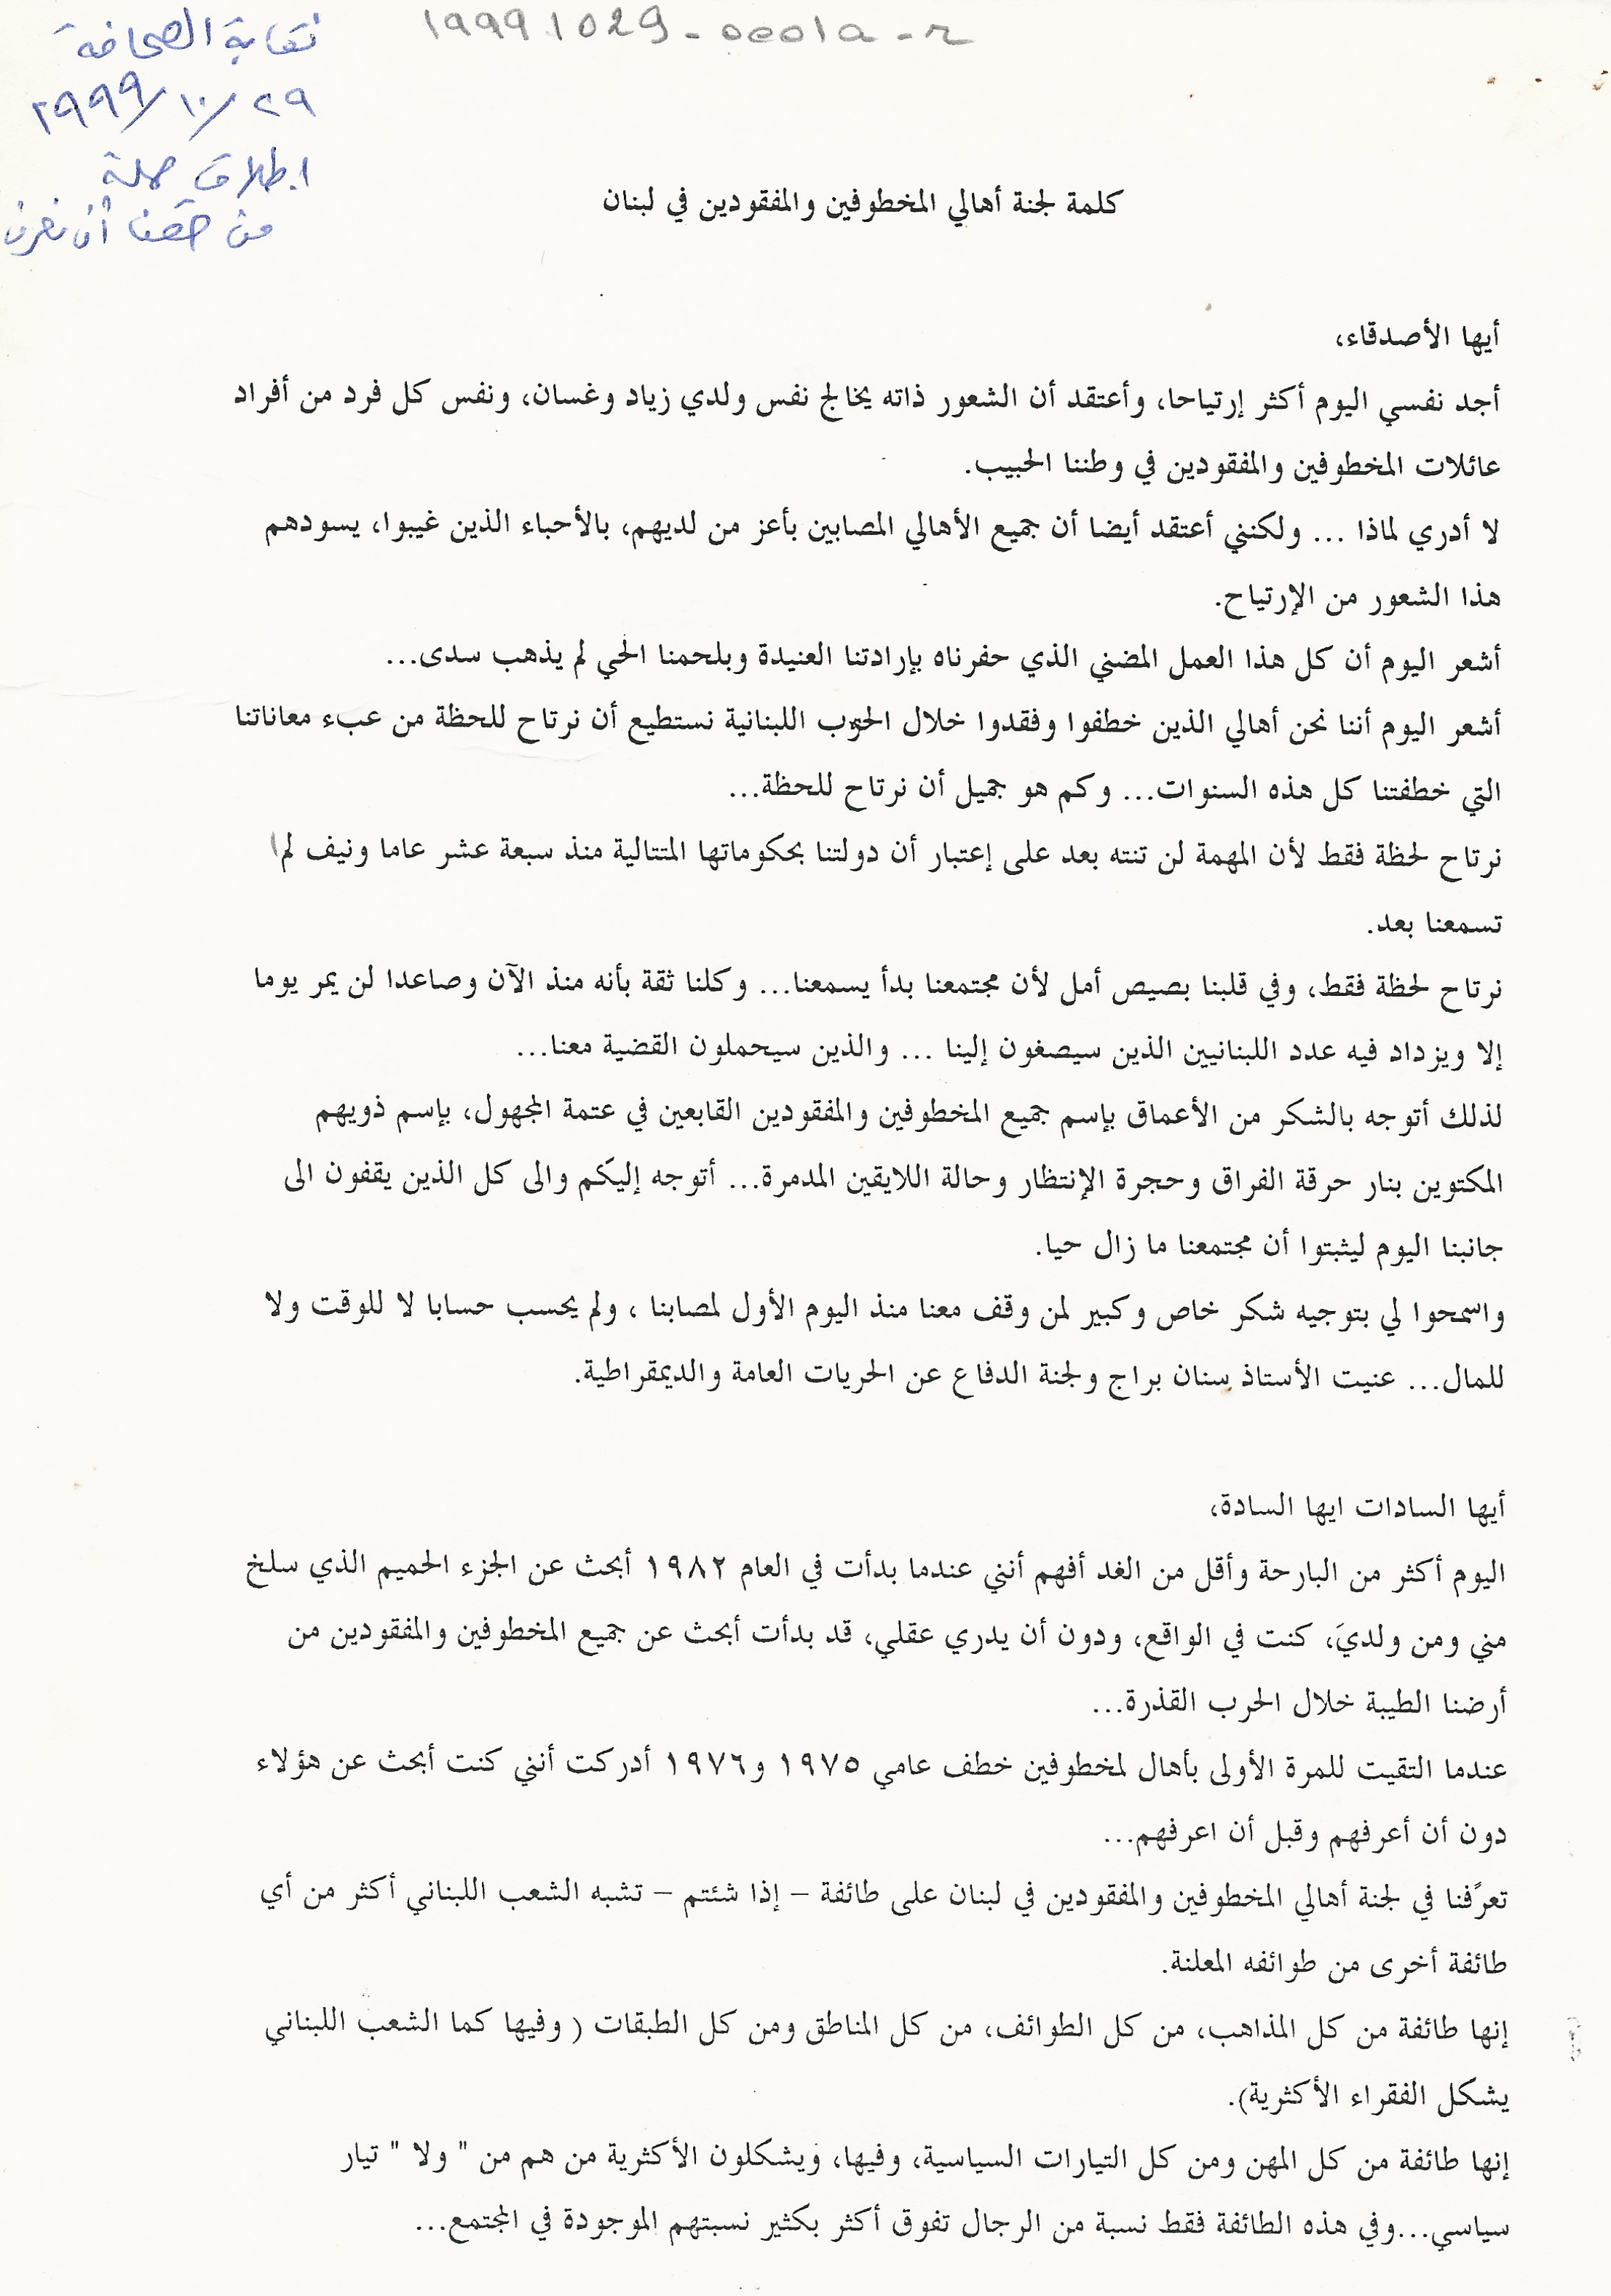 19991029-oeo1a-r
نقابة الصحافة
٢٩/١٠/١٩٩٩
اطلاق حملة
من حقنا أن نعرف
كلمة لجنة أهالي المخطوفين والمفقودين في لبنان
أيها الأصدقاء،
أجد نفسي اليوم أكثر إرتياحا، وأعتقد أن الشعور ذاته يخالج نفس ولدي زياد وغسان، ونفس كل فرد من أفراد
عائلات المخطوفين والمفقودين في وطننا الحبيب.
لا أدري لماذا ... ولكنني أعتقد أيضا أن جميع الأهالي المصابين بأعز من لديهم، بالأحباء الذين غيبوا، يسودهم
هذا الشعور من الإرتياح.
أشعر اليوم أن كل هذا العمل المضني الذي حفرناه بإرادتنا العنيدة وبلحمنا الحي لم يذهب سدى...
أشعر اليوم أننا نحن أهالي الذين خطفوا وفقدوا خلال الحرب اللبنانية نستطيع أن نرتاح للحظة من عبء معاناتنا
التي خطفتنا كل هذه السنوات... وكم هو جميل أن نرتاح للحظة...
نرتاح لحظة فقط لأن المهمة لن تنته بعد على إعتبار أن دولتنا بحكوماتها المتتالية منذ سبعة عشر عاما ونيف لما
تسمعنا بعد.
نرتاح لحظة فقط، وفي قلبنا بصيص أمل لأن مجتمعنا بدأ يسمعنا... وكلنا ثقة بأنه منذ الآن وصاعدا لن يمر يوما
إلا ويزداد فيه عدد اللبنانيين الذين سيصغون إلينا ... والذين سيحملون القضية معنا...
لذلك أتوجه بالشكر من الأعماق بإسم جميع المخطوفين والمفقودين القابعين في عتمة المجهول، بإسم ذويهم
المكتوين بنار حرقة الفراق وحجرة الإنتظار وحالة اللايقين المدمرة... أتوجه إليكم والى كل الذين يقفون الى
جانبنا اليوم ليثبتوا أن مجتمعنا ما زال حيا.
واسمحوا لي بتوجيه شكر خاص وكبير لمن وقف معنا منذ اليوم الأول لمصابنا ، ولم يحسب حسابا لا للوقت ولا
للمال... عنيت الأستاذ سنان براج ولجنة الدفاع عن الحريات العامة والديمقراطية.
أيها السادات ايها السادة،
اليوم أكثر من البارحة وأقل من الغد أفهم أنني عندما بدأت في العام ١٩٨٢ أبحث عن الجزء الحميم الذي سلخ
مني ومن ولديَ، كنت في الواقع، ودون أن يدري عقلي، قد بدأت أبحث عن جميع المخطوفين والمفقودين من
أرضنا الطيبة خلال الحرب القذرة...
عندما التقيت للمرة الأولى بأهال لمخطوفين خطف عامي ١٩٧٥ و١٩٧٦ أدركت أنني كنت أبحث عن هؤلاء
دون أن أعرفهم وقبل أن اعرفهم...
تعرًفنا في لجنة أهالي المخطوفين والمفقودين في لبنان على طائفة – إذا شئتم – تشبه الشعب اللبناني أكثر من أي
طائفة أخرى من طوائفه المعلنة.
إنها طائفة من كل المذاهب، من كل الطوائف، من كل المناطق ومن كل الطبقات ( وفيها كما الشعب اللبناني
يشكل الفقراء الأكثرية).
إنها طائفة من كل المهن ومن كل التيارات السياسية، وفيها، ويشكلون الأكثرية من هم من " ولا " تيار
سياسي...وفي هذه الطائفة فقط نسبة من الرجال تفوق أكثر بكثير نسبتهم الموجودة في المجتمع...